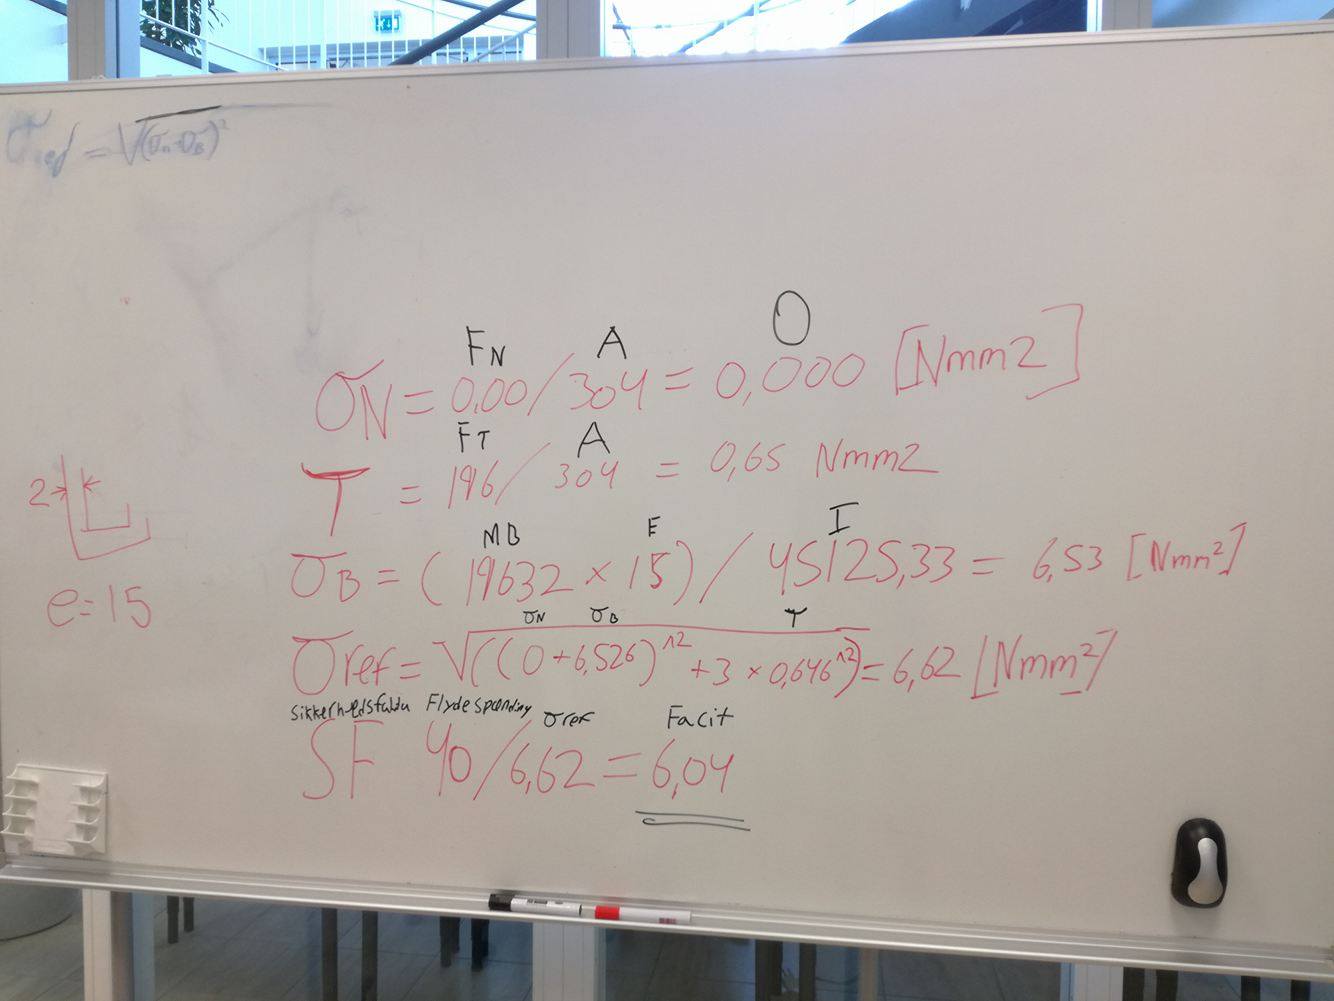 σred = √(σn+σB)²
FN A 0
σN = 0,00 / 304 = 0,000 [Nmm2]
FT A
T = 196 / 304 = 0,65 Nmm2
MB E I
σB = (19632 × 15) / 45125,33 = 6,53 [Nmm²]
σN σB T
σref = √((0+6,526)^2 + 3 × 0,646^2) = 6,62 [Nmm²]
Flydespænding σref Facit
SF 40 / 6,62 = 6,04
2
e=15